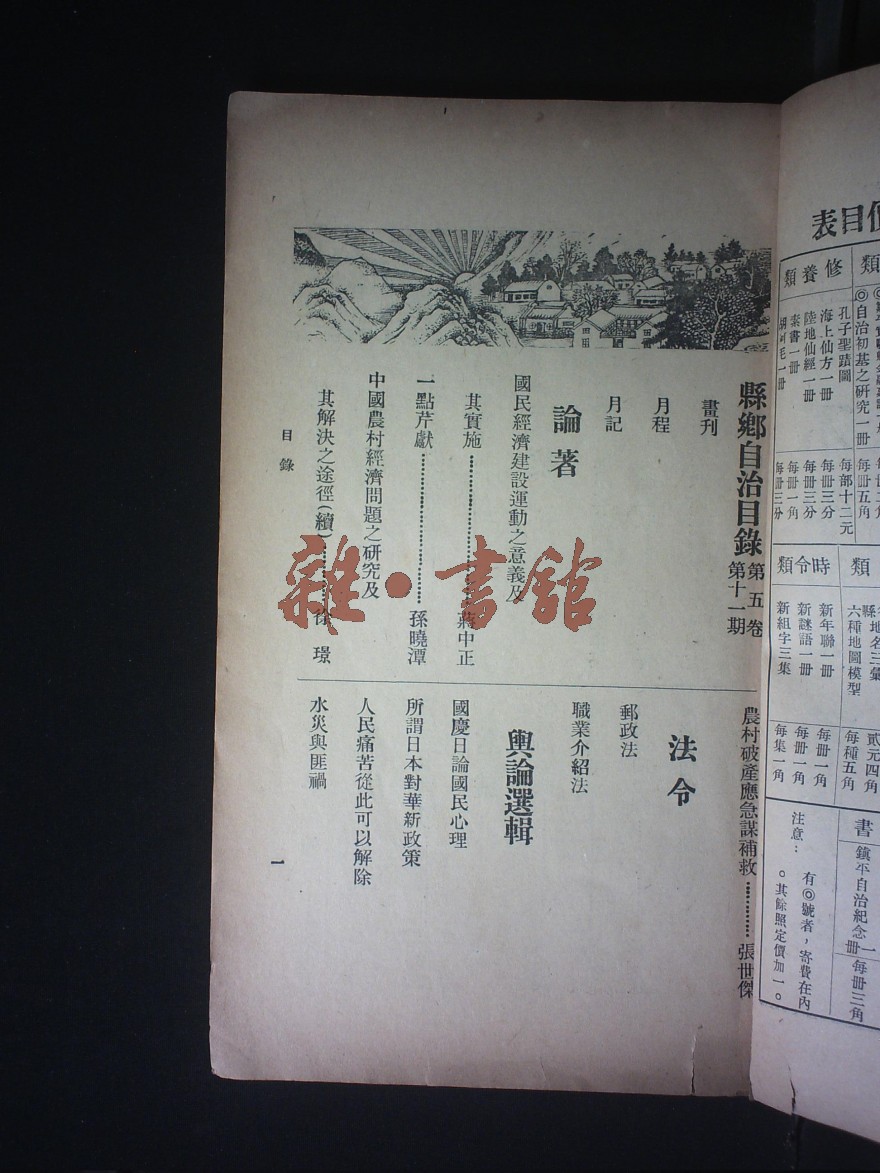 縣鄉自治目錄 第五卷 第十一期
畫刊
月程
月記
論著
國民經濟建設運動之意義及
其實施…………蔣中正
一點芹獻…………孫曉潭
中國農村經濟問題之研究及
其解決之途徑(續)…………徐璟
農村破產應急謀補救…………張世傑
法令
郵政法
職業介紹法
輿論選輯
國慶日論國民心理
所謂日本對華新政策
人民痛苦從此可以解除
水災與匪禍
目錄
一
雜·書館
價目表
類
◎自治初基之研究一冊 每冊五角
修養類
孔子聖蹟圖 每部十二元
海上仙方一冊 每冊三分
陸地仙經一冊 每冊三分
素書一冊 每冊一角
一冊 每冊三分
類
縣地名三彙 貳元四角
六種地圖模型 每種五角
時令類
新年聯一冊 每冊一角
新謎語一冊 每冊一角
新組字三集 每集一角
書
鎮平自治紀念一冊 每冊三角
注意：
有◎號者，寄費在內
。其餘照定價加一。